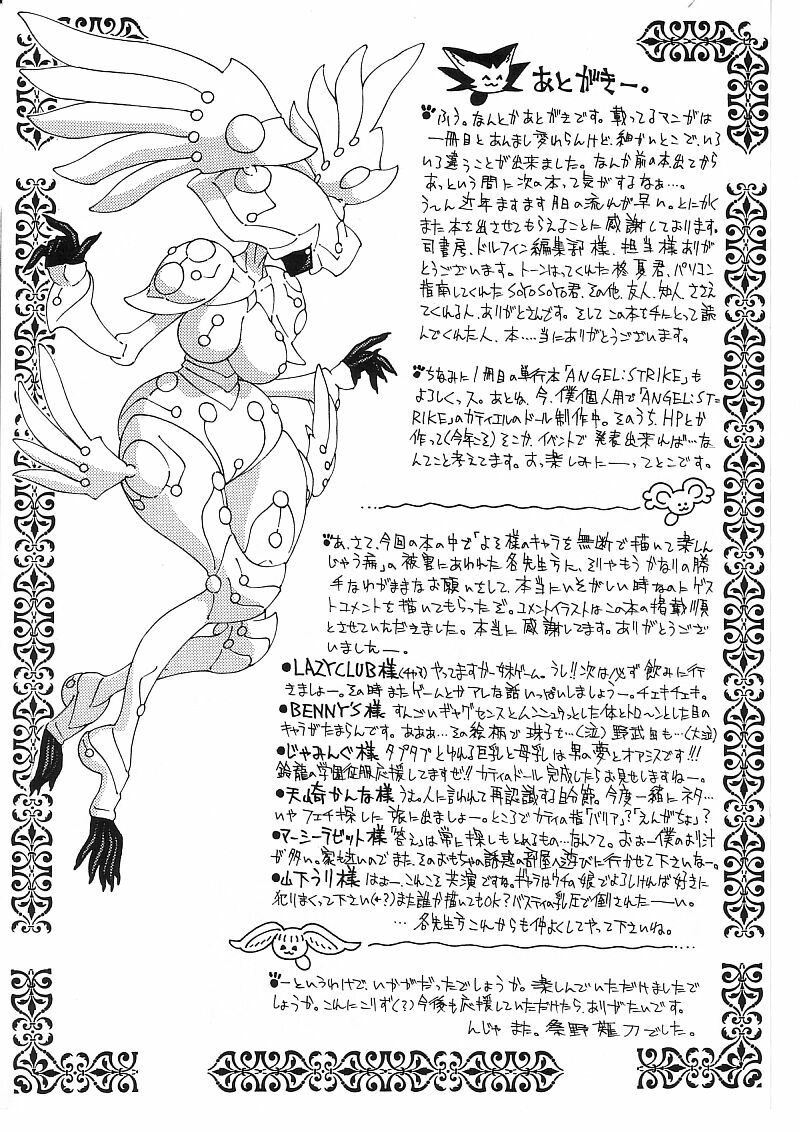 あとがきー。
ふぅ。なんとかあとがきです。載ってるマンガは
一冊目とあんまし変わらんけど、細かいとこで、いろ
いろ違うことが出来ました。なんか前の本出てから
あっという間に次の本って気がするなぁ…。
う〜ん近年ますます月日の流れが早い。とにかく
また本を出させてもらえることに感謝しております。
司書房、ドルフィン編集部様、担当様ありが
とうございます。トーンはってくれた柊夏君、パソコン
指南してくれたSOYOSOYO君、その他、友人、知人、ささえ
てくれる人、ありがとさんです。そしてこの本を手にとって読
んでくれた人、本…当にありがとうございます。
ちなみに1冊目の単行本「ANGEL:STRIKE」も
よろしくっス。あとね、今、僕個人用で「ANGEL:ST=
RIKE」のカティエルのドール制作中。そのうち、HPとか
作って(今年こそ)そこか、イベントで発表出来れば…な
んてこと考えてます。おっ楽しみにーってとこです。
あ、さて、今回の本の中で「よそ様のキャラを無断で描いて楽しん
じゃう病」の被害にあわれた各先生方に、そりゃもうかなりの勝
手なわがままなお願いをして、本当にいそがしい時なのにゲス
トコメントを描いてもらったぞ。コメントイラストはこの本の掲載順
とさせていただきました。本当に感謝してます。ありがとうござ
いましたー。
●LAZYCLUB様(チャス)やってますかー妹ゲーム。うし!!次は必ず飲みに行
きましょー。その時またゲームとかアレな話いっぱいしましょうー。チェキチェキ。
●BENNY'S様 すんごいギャグセンスとムンニュうっとした体とトローンとした目の
キャラがたまらんです。あああ…その絵柄で珠子も…(泣)野武目も…(大泣)
●じゃみんぐ様 タプタプとゆれる巨乳と母乳は男の夢とオアシスです!!!
鈴龍の学園征服応援してますぜ!!カティのドール完成したらお見せしますねー。
●天山崎かんな様 うむ。人に言われて再認識する自分節。今度一緒にネタ…
いやフェチ探しに旅に出ましょー。ところでカティの指「バリア」?「えんがちょ」?
●マーシーラビット様 「答え」は常に探しもとめるもの…なんてな。おぉー僕のお汁
が多い。家も近いのでまた、そのおもちゃの誘惑の部屋へ遊びに行かせて下さいなー。
●山下うり様 はぉー、これこそ共演ですね。キャラはウチの娘でよろしければ好きに
犯りまくって下さい(+?)また誰か描いてもOK?バスティの乳圧で倒されたーい。
… 各先生方これからも仲よくしてやって下さいね。
ーというわけで、いかがだったでしょうか。楽しんでいただけましたで
しょうか。これにこりず(?)今後も応援していただけたら、ありがたいです。
んじゃ また。桑野難刀でした。